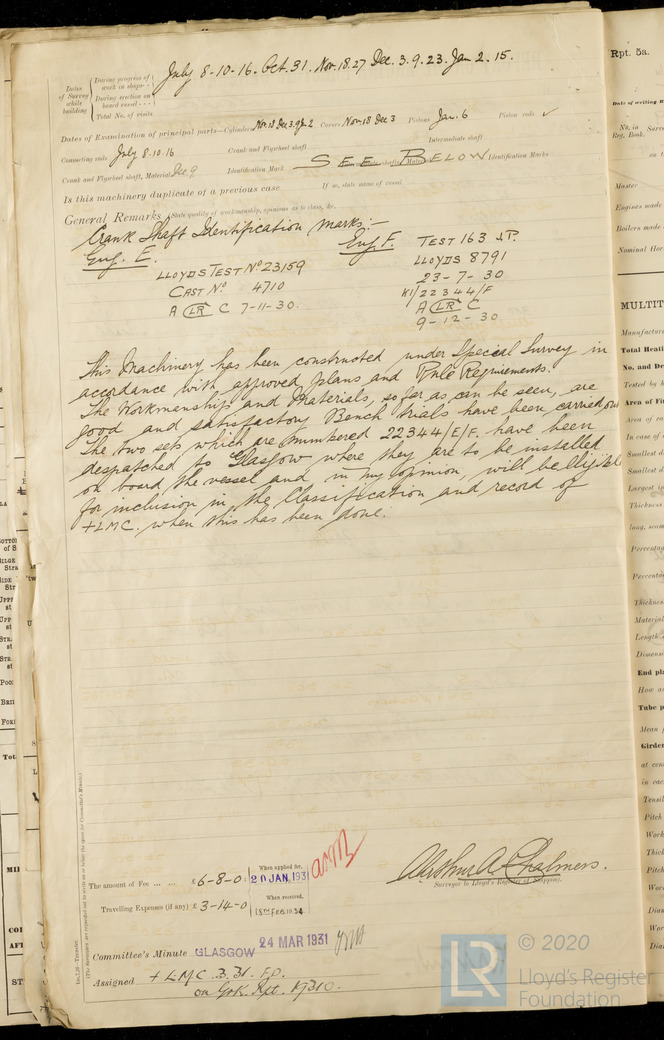 July 8-10-16. Oct. 31. Nov. 18. 27 Dec. 3. 9. 23. Jan 2. 15.
Rpt. 5a.
Dates of Survey while building
During progress of work in shops - -
During erection on board vessel - - -
Total No. of visits
Dates of Examination of principal parts—Cylinders Nov 18 Dec 3. 9 Jan 2 Covers Nov 18 Dec 3 Pistons Jan. 6 Piston rods ✓
Connecting rods July 8. 10. 16 Crank and Flywheel shaft Intermediate shaft
Crank and Flywheel shaft, Material Dec 9 Identification Mark SEE BELOW Identification Marks
Is this machinery duplicate of a previous case If so, state name of vessel
General Remarks (State quality of workmanship, opinions as to class, &c.
Crank Shaft Identification marks:-
Eng. E.
LLOYDS TEST Nº 23159
CAST Nº 4710
A LR C 7-11-30.
Eng F. TEST 163 J.P.
LLOYDS 8791
23-7-30
K1/22344/F
A LR C
9-12-30
This Machinery has been constructed under Special Survey in
accordance with approved plans and Rule Requirements.
The Workmanship and Materials, so far as can be seen, are
good and satisfactory Bench trials have been carried out
The two sets which are numbered 22344/E/F. have been
despatched to Glasgow where they are to be installed
on board the vessel and in my opinion, will be eligible
for inclusion in the Classification and record of
+LMC. when this has been done.
The amount of Fee ... ... £ 6-8-0
When applied for, 20 JAN. 1931
Travelling Expenses (if any) £ 3-14-0
When received,
Arthur A. Chalmers.
Surveyor to Lloyd's Register of Shipping.
Committee's Minute GLASGOW 24 MAR 1931
Assigned + LMC 3.31. F.D.
on Grk. Rpt.
© 2020
Lloyd's Register
Foundation
LR
Date of writing R
No. in Reg. Book.
Master
Engines made
Boilers made
Nominal Hor
MULTIT
Manufacture
Total Heati
No. and De
Tested by h
Area of Fi
Area of
In case of
Smallest d
Smallest d
Largest
Thickness
long. seam
Percentag
Percenta
Thicknes
Material
Length
Dimens
End pla
How a
Tube p
Mean p
Girder
at cen
in eac
Tensil
Pitch
Work
Thick
Pitch
Wor
Dia
Wor
Diam